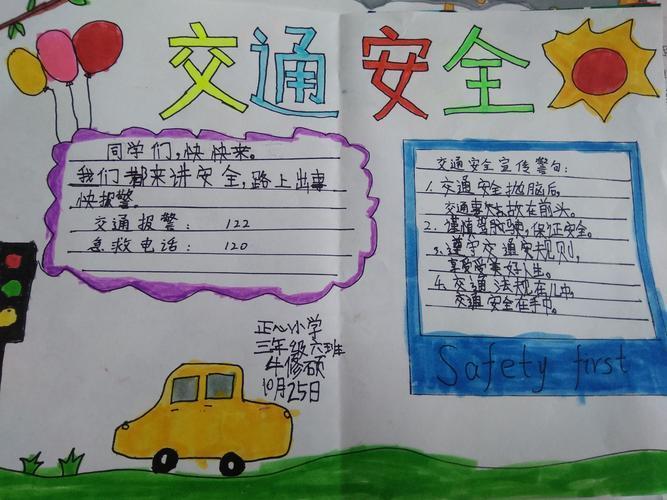 交通安全
同学们,快快来。
我们都来讲安全,路上出事
快报警。
交通报警: 122
急救电话: 120
正心小学
三年级六班
牛修硕
10月25日
交通安全宣传警句:
1. 交通安全抛脑后,
交通事故在前头。
2. 谨慎驾驶,保证安全。
3. 遵守交通安规则,
享受美好人生。
4. 交通法规在儿中,
交通安全在手中。
Safety first